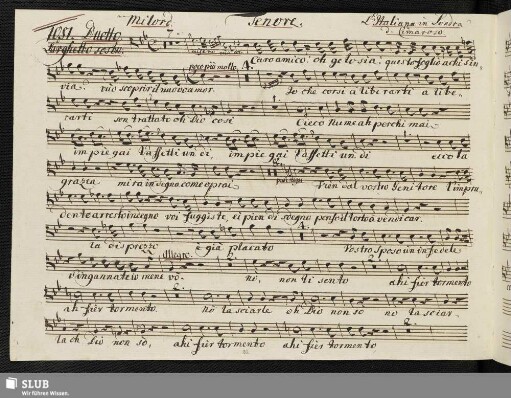 Milord Tenore L'Italiana in Londra
di Cimarosa.
1681. Duetto
Larghetto sostn:
Caro amico: oh gelosia: questo foglio a chi in-
poco più molto. 4.
via: vuò scoprir il nuovo amor. Io che corsi a liberarti a libe-
rarti son trattato oh Dio così Cieco Nume ah perchi mai
impiegai l'affetti un dì, impiegai l'affetti un dì ecco la
grazia mira indegno come oprai Vien dal vostro Genitore l'impru-
dente arresto indegno voi fuggiste, ei pien di sdegno pensò il torto a vendicar.
4.
la disprezzo è già placato Vostro sposo un infedele
Allegro. 2.
v'ingannate io meni vò no, non ti sento ahi fier tormento
ahi fier tormento. no lasciarle oh Dio non so no lasciar-
la oh Dio non so, ahi fier tormento ahi fier tormento
SLUB
Wir führen Wissen.